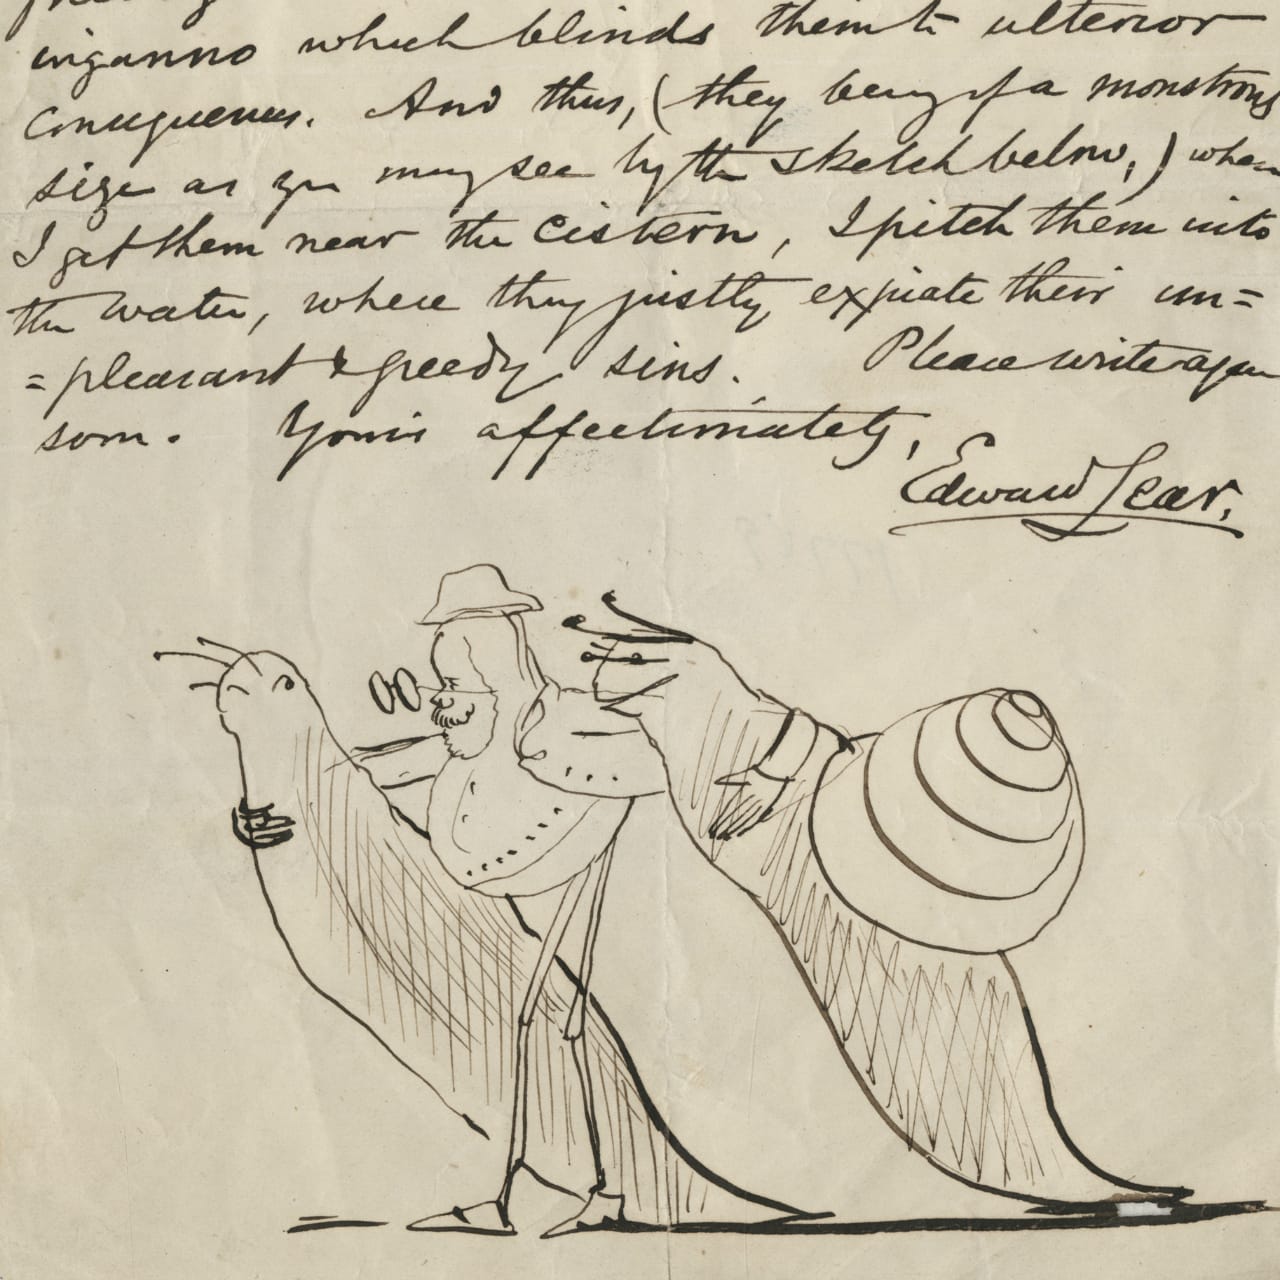 inganno which blinds them to ulterior
consequences. And thus, (they being of a monstrous
size as you may see by the sketch below,) when
I get them near the cistern, I pitch them into
the water, where they justly expiate their un=
=pleasant & greedy sins. Please write again
soon. Yours affectionately,
Edward Lear.